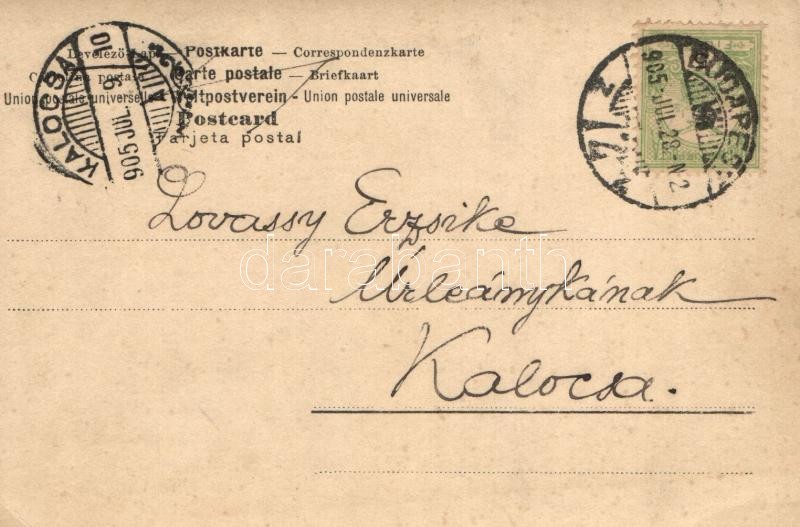 Levelező-Lap — Postkarte — Correspondenzkarte
Carte postale — Briefkaart
Union postale universelle Weltpostverein - Union postale universale
Postcard
Tarjeta postal
KALOCSA
905 JUL
BUDAPEST
905 JUL 28
Lovassy Erzsike
Úrleánykának
Kalocsa.
darabanth